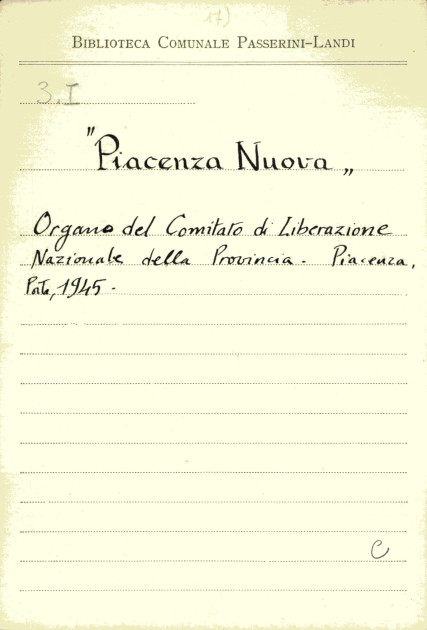 17)
BIBLIOTECA COMUNALE PASSERINI-LANDI
3.I
"Piacenza Nuova„
Organo del Comitato di Liberazione
Nazionale della Provincia. Piacenza,
Porta, 1945.
C